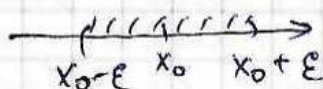 x₀-ε x₀ x₀+ε